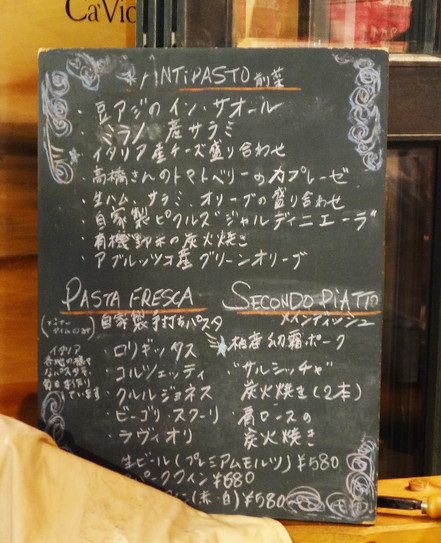 Ca'Vio
ANTIPASTO 前菜
・豆アジのイン・サオール
・ミラノ産サラミ
・イタリア産チーズ盛り合わせ
・高橋さんのトマトベリーのカプレーゼ
・生ハム、サラミ、オリーブの盛り合わせ
・自家製ピクルス"ジャルディニエーラ"
・有機野菜の炭火焼き
・アブルッツォ産グリーンオリーブ
PASTA FRESCA
(ディナータイムのみ) 自家製手打ちパスタ
イタリア
各地の様々
なパスタを
毎日手作り
しています
・ロリギッタス
・コルツェッティ
・クルルジョネス
・ビーゴリ・スクーリ
・ラヴィオリ
SECONDO PIATTO
メインディッシュ
柏産幻霜ポーク
"サルシッチャ"
炭火焼き(2本)
・肩ロースの
炭火焼き
生ビール(プレミアムモルツ)¥580
パークワイン ¥580
(赤・白)¥580